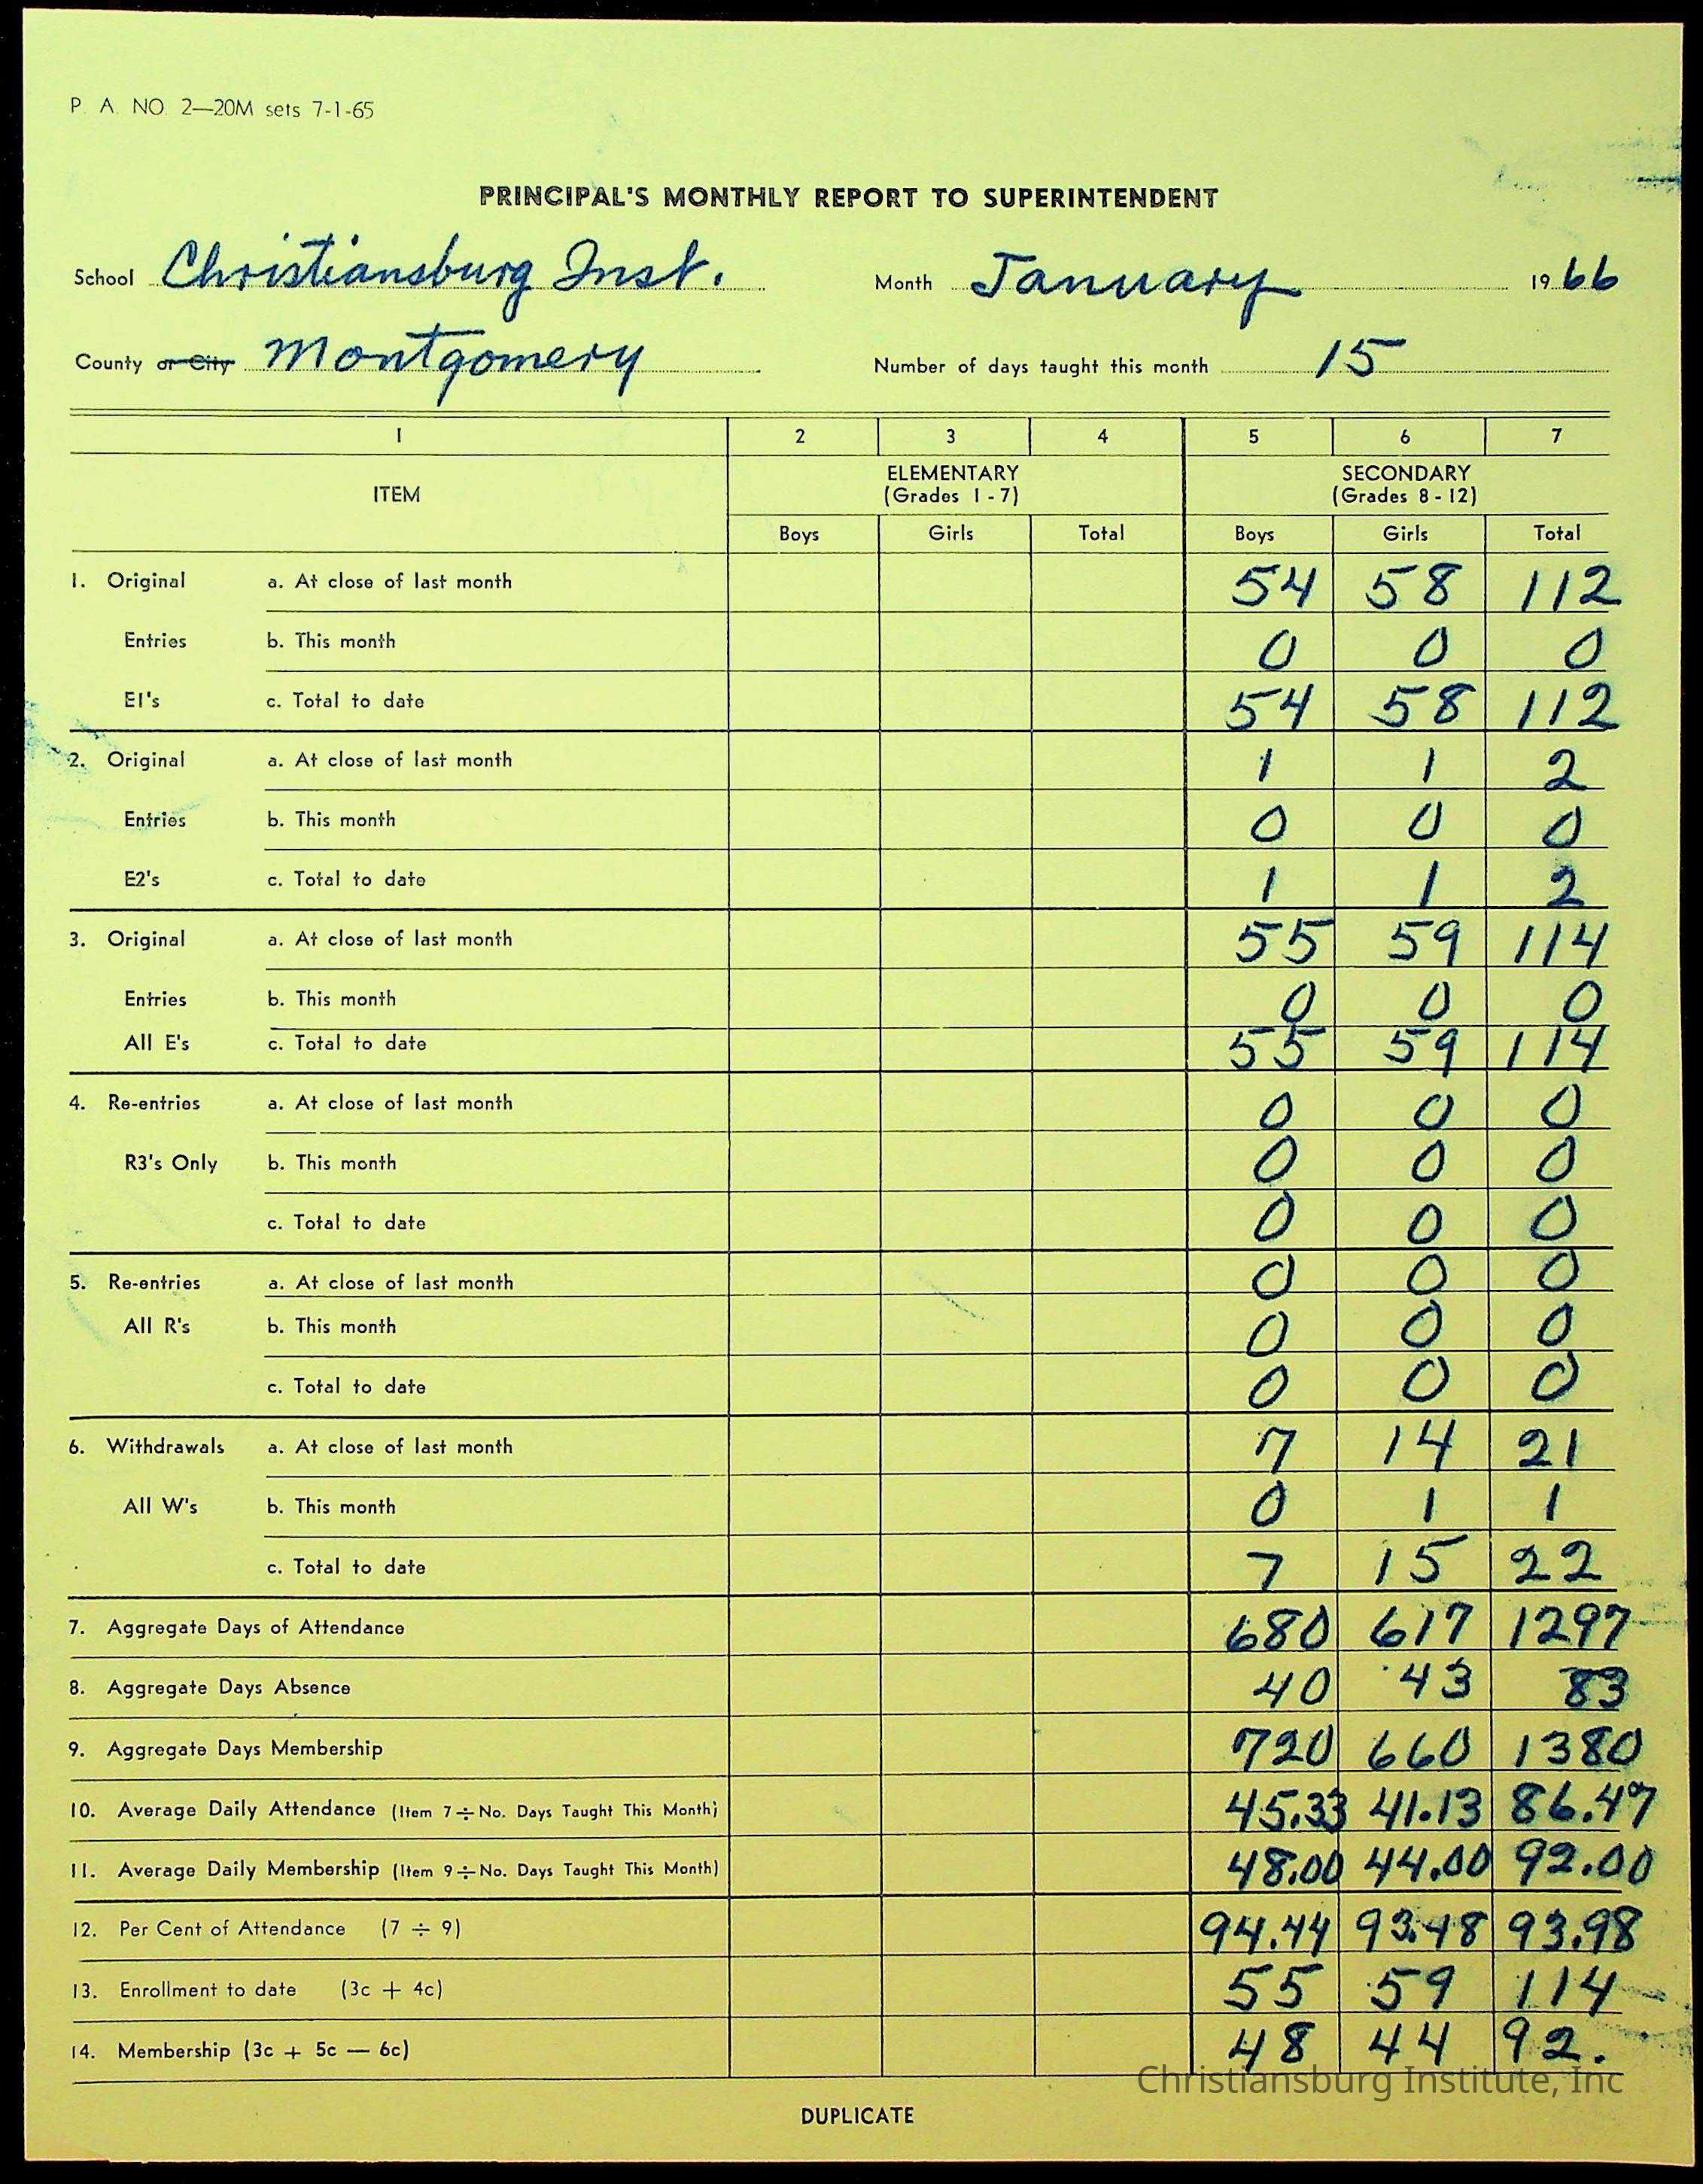 P. A. NO. 2—20M sets 7-1-65
PRINCIPAL'S MONTHLY REPORT TO SUPERINTENDENT
School Christiansburg Inst. Month January 1966
County or City Montgomery Number of days taught this month 15
1 2 3 4 5 6 7
ITEM ELEMENTARY (Grades 1 - 7) SECONDARY (Grades 8 - 12)
Boys Girls Total Boys Girls Total
1. Original a. At close of last month 54 58 112
Entries b. This month 0 0 0
E1's c. Total to date 54 58 112
2. Original a. At close of last month 1 1 2
Entries b. This month 0 0 0
E2's c. Total to date 1 1 2
3. Original a. At close of last month 55 59 114
Entries b. This month 0 0 0
All E's c. Total to date 55 59 114
4. Re-entries a. At close of last month 0 0 0
R3's Only b. This month 0 0 0
c. Total to date 0 0 0
5. Re-entries a. At close of last month 0 0 0
All R's b. This month 0 0 0
c. Total to date 0 0 0
6. Withdrawals a. At close of last month 7 14 21
All W's b. This month 0 1 1
c. Total to date 7 15 22
7. Aggregate Days of Attendance 680 617 1297
8. Aggregate Days Absence 40 43 83
9. Aggregate Days Membership 720 660 1380
10. Average Daily Attendance (Item 7 ÷ No. Days Taught This Month) 45.33 41.13 86.47
11. Average Daily Membership (Item 9 ÷ No. Days Taught This Month) 48.00 44.00 92.00
12. Per Cent of Attendance (7 ÷ 9) 94.44 93.48 93.98
13. Enrollment to date (3c + 4c) 55 59 114
14. Membership (3c + 5c — 6c) 48 44 92.
Christiansburg Institute, Inc
DUPLICATE